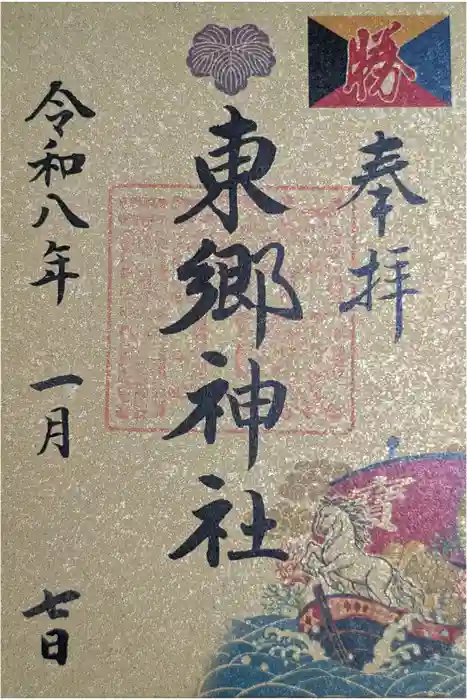 勝
奉拝
東郷神社
令和八年 一月 七日
寶